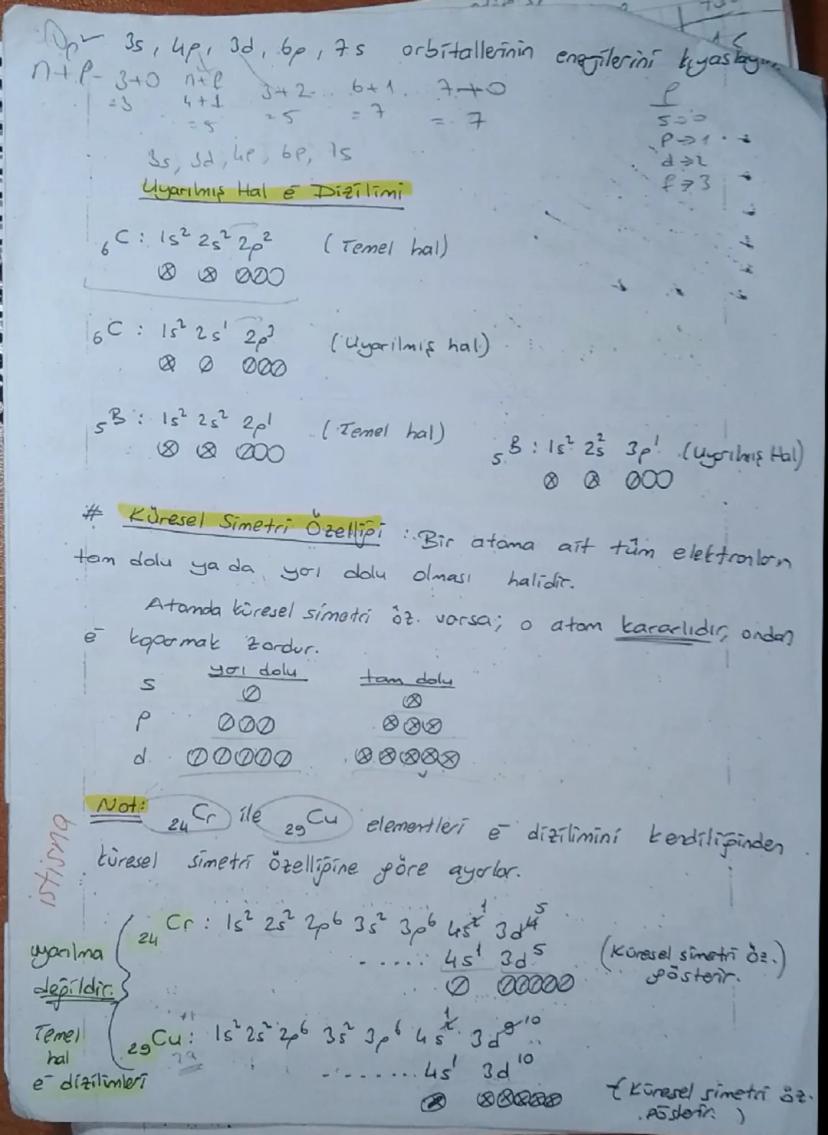 3s, 4p, 3d, 6p, 7s orbitallerinin enerjilerini kıyaslayın
n+l 3+0 n+l 3+2 6+1 7+0
=3 4+1 =5 =7 = 7
=5
l
s=>0
p=>1
d=>2
f=>3
3s, 3d, 4p, 6p, 7s
Uyarılmış Hal e⁻ Dizilimi
₆C: 1s² 2s² 2p² (Temel hal)
₆C: 1s² 2s¹ 2p³ (Uyarılmış hal)
₅B: 1s² 2s² 2p¹ (Temel hal)
₅B: 1s² 2s² 3p¹ (Uyarılmış Hal)
# Küresel Simetri Özelliği: Bir atoma ait tüm elektronların
tam dolu ya da yarı dolu olması halidir.
Atomda küresel simetri öz. varsa; o atom kararlıdır, ondan
e⁻ koparmak zordur.
yarı dolu tam dolu
s
p
d
Not: ₂₄Cr ile ₂₉Cu elementleri e⁻ dizilimini kendiliğinden
küresel simetri özelliğine göre ayarlar.
istisna
₂₄Cr: 1s² 2s² 2p⁶ 3s² 3p⁶ 4s¹ 3d⁵
...... 4s¹ 3d⁵ (Küresel simetri öz. gösterir.)
uyarılma
değildir.
Temel
hal
e⁻ dizilimleri
₂₉Cu: 1s² 2s² 2p⁶ 3s² 3p⁶ 4s¹ 3d¹⁰
......... 4s¹ 3d¹⁰
(Küresel simetri öz.
gösterir.)